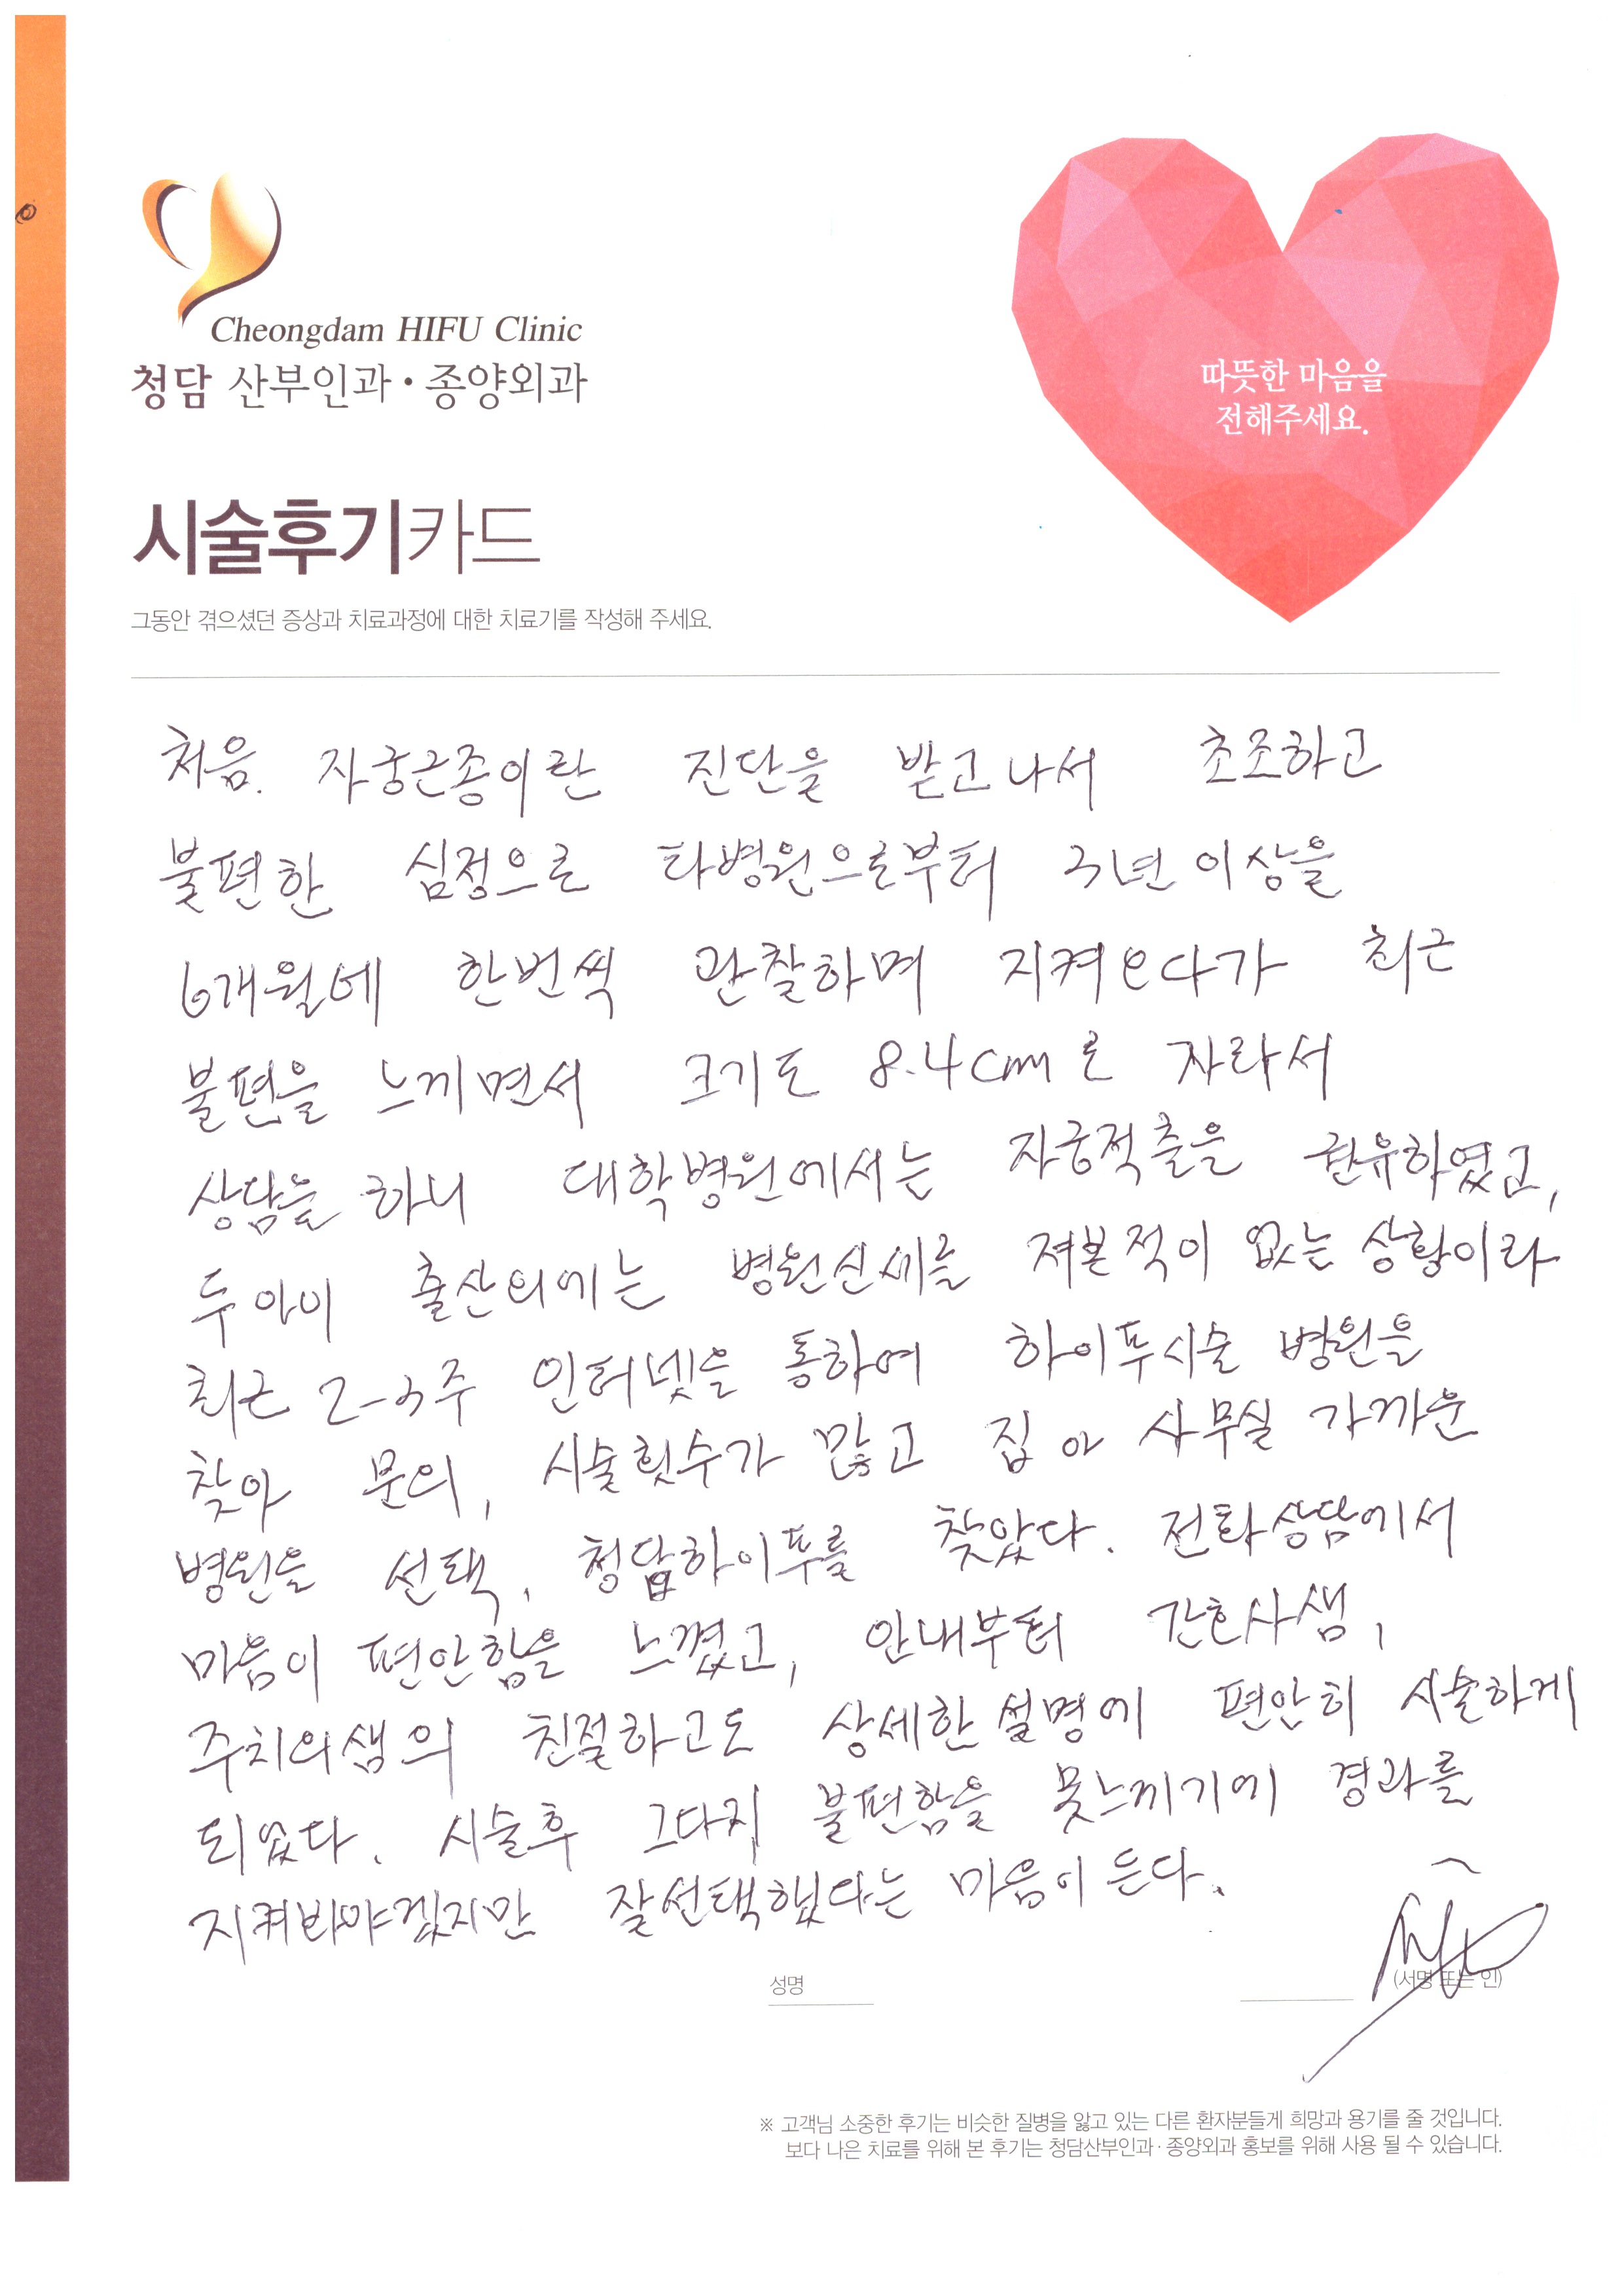 Cheongdam HIFU Clinic
청담 산부인과·종양외과
따뜻한 마음을
전해주세요.
시술후기카드
그동안 겪으셨던 증상과 치료과정에 대한 치료기를 작성해 주세요.
처음. 자궁근종이란 진단을 받고나서 초조하고
불편한 심정으로 타병원으로부터 3년이상을
6개월에 한번씩 관찰하며 지켜오다가 최근
불편을 느끼면서 크기도 8.4cm로 자라서
상담을 하니 대학병원에서는 자궁적출을 권유하였고,
두아이 출산외에는 병원신세를 져본적이 없는 상황이라
최근 2-3주 인터넷을 통하여 하이푸시술 병원을
찾아 문의, 시술횟수가 많고 집 아 사무실 가까운
병원을 선택, 청담하이푸를 찾았다. 전화상담에서
마음이 편안함을 느꼈고, 안내부터 간호사샘,
주치의샘의 친절하고도 상세한 설명에 편안히 시술하게
되었다. 시술후 그다지 불편함을 못느끼기에 경과를
지켜봐야겠지만 잘선택했다는 마음이 든다.
성명 (서명 또는 인)
※ 고객님 소중한 후기는 비슷한 질병을 앓고 있는 다른 환자분들게 희망과 용기를 줄 것입니다.
보다 나은 치료를 위해 본 후기는 청담산부인과·종양외과 홍보를 위해 사용 될 수 있습니다.